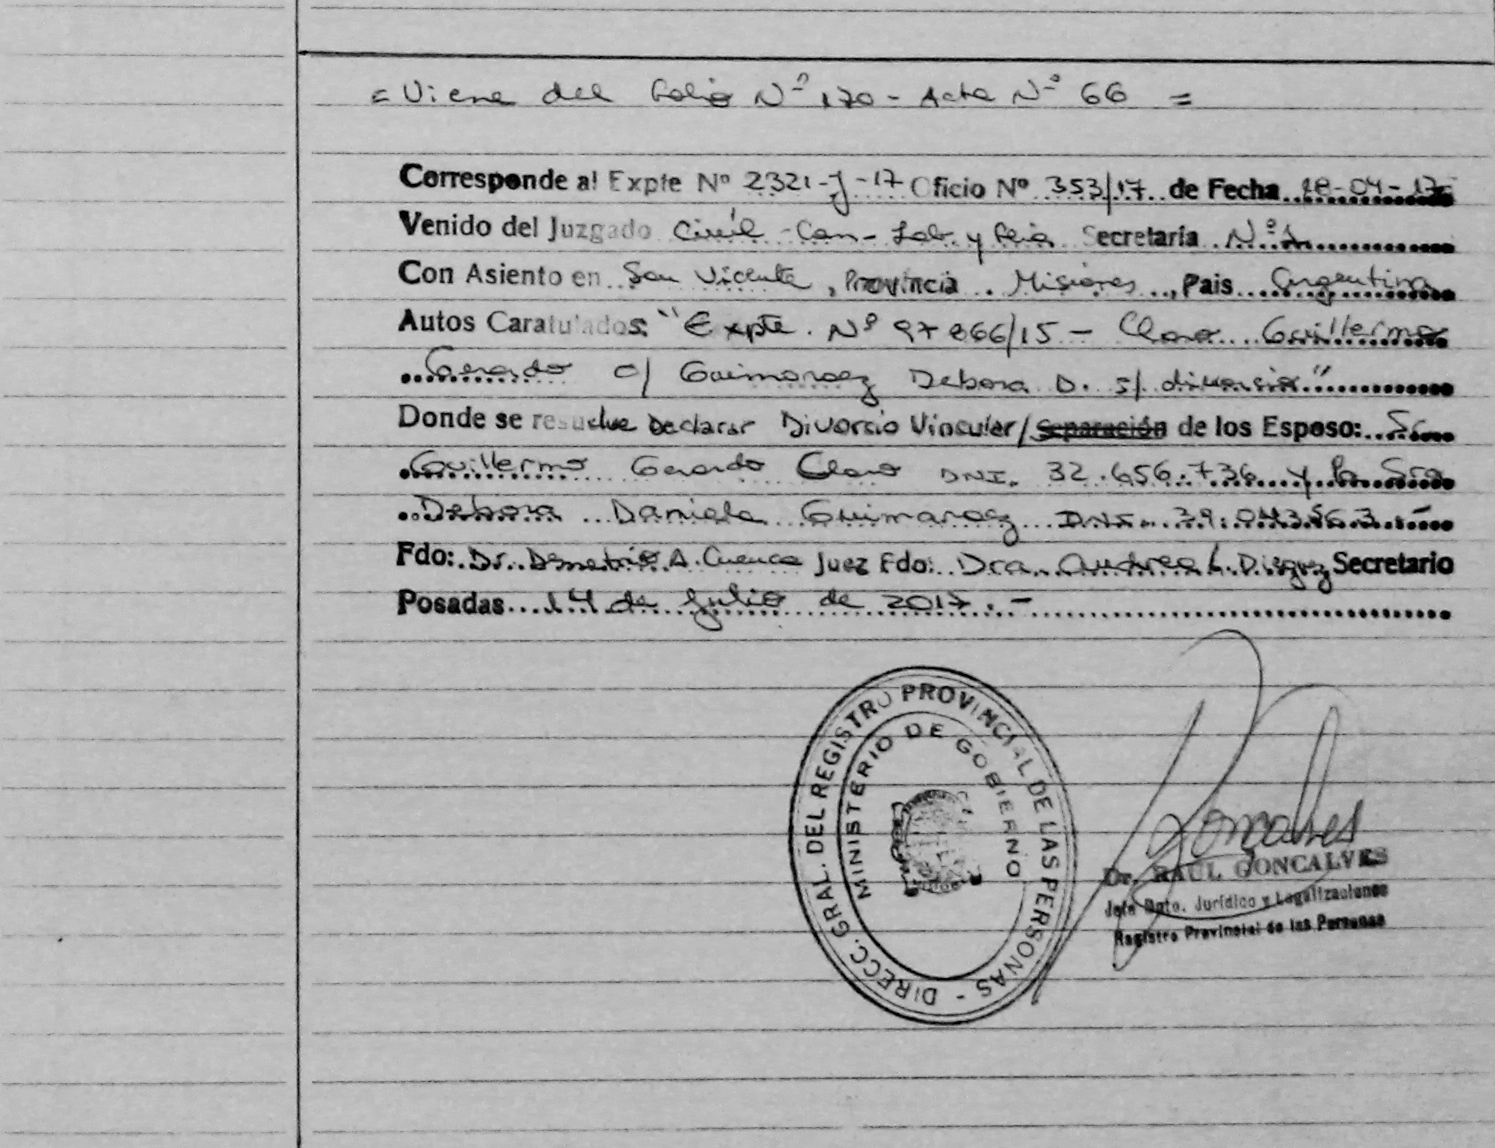 = Viene del folio Nº 170 - Acta Nº 66 =
Corresponde al Expte Nº 2321-J-17 Oficio Nº 353/17 de Fecha 18-04-17
Venido del Juzgado Civil - Com - Lab. y flia Secretaría Nº 1
Con Asiento en San Vicente, Provincia Misiones, Pais Argentina
Autos Caratulados: "Expte. Nº 97866/15 - Claro Guillermo
Gerardo c/ Guimaraez Debora D. s/ divorcio"
Donde se resuelve Declarar Divorcio Vincular/Separación de los Esposo: Sr.
Guillermo Gerardo Claro DNI. 32.656.736 y la Sra
Debora Daniela Guimaraez DNI. 39.043.563.-
Fdo: Dr. Demetrio A. Cuenca Juez Fdo: Dra. Andrea L. Dieguez Secretario
Posadas 14 de Julio de 2017.-
DIRECC. GRAL. DEL REGISTRO PROVINCIAL DE LAS PERSONAS -
MINISTERIO DE GOBIERNO
Goncalves
Dr. RAUL GONCALVES
Jefe Dpto. Jurídico y Legalizaciones
Registro Provincial de las Personas